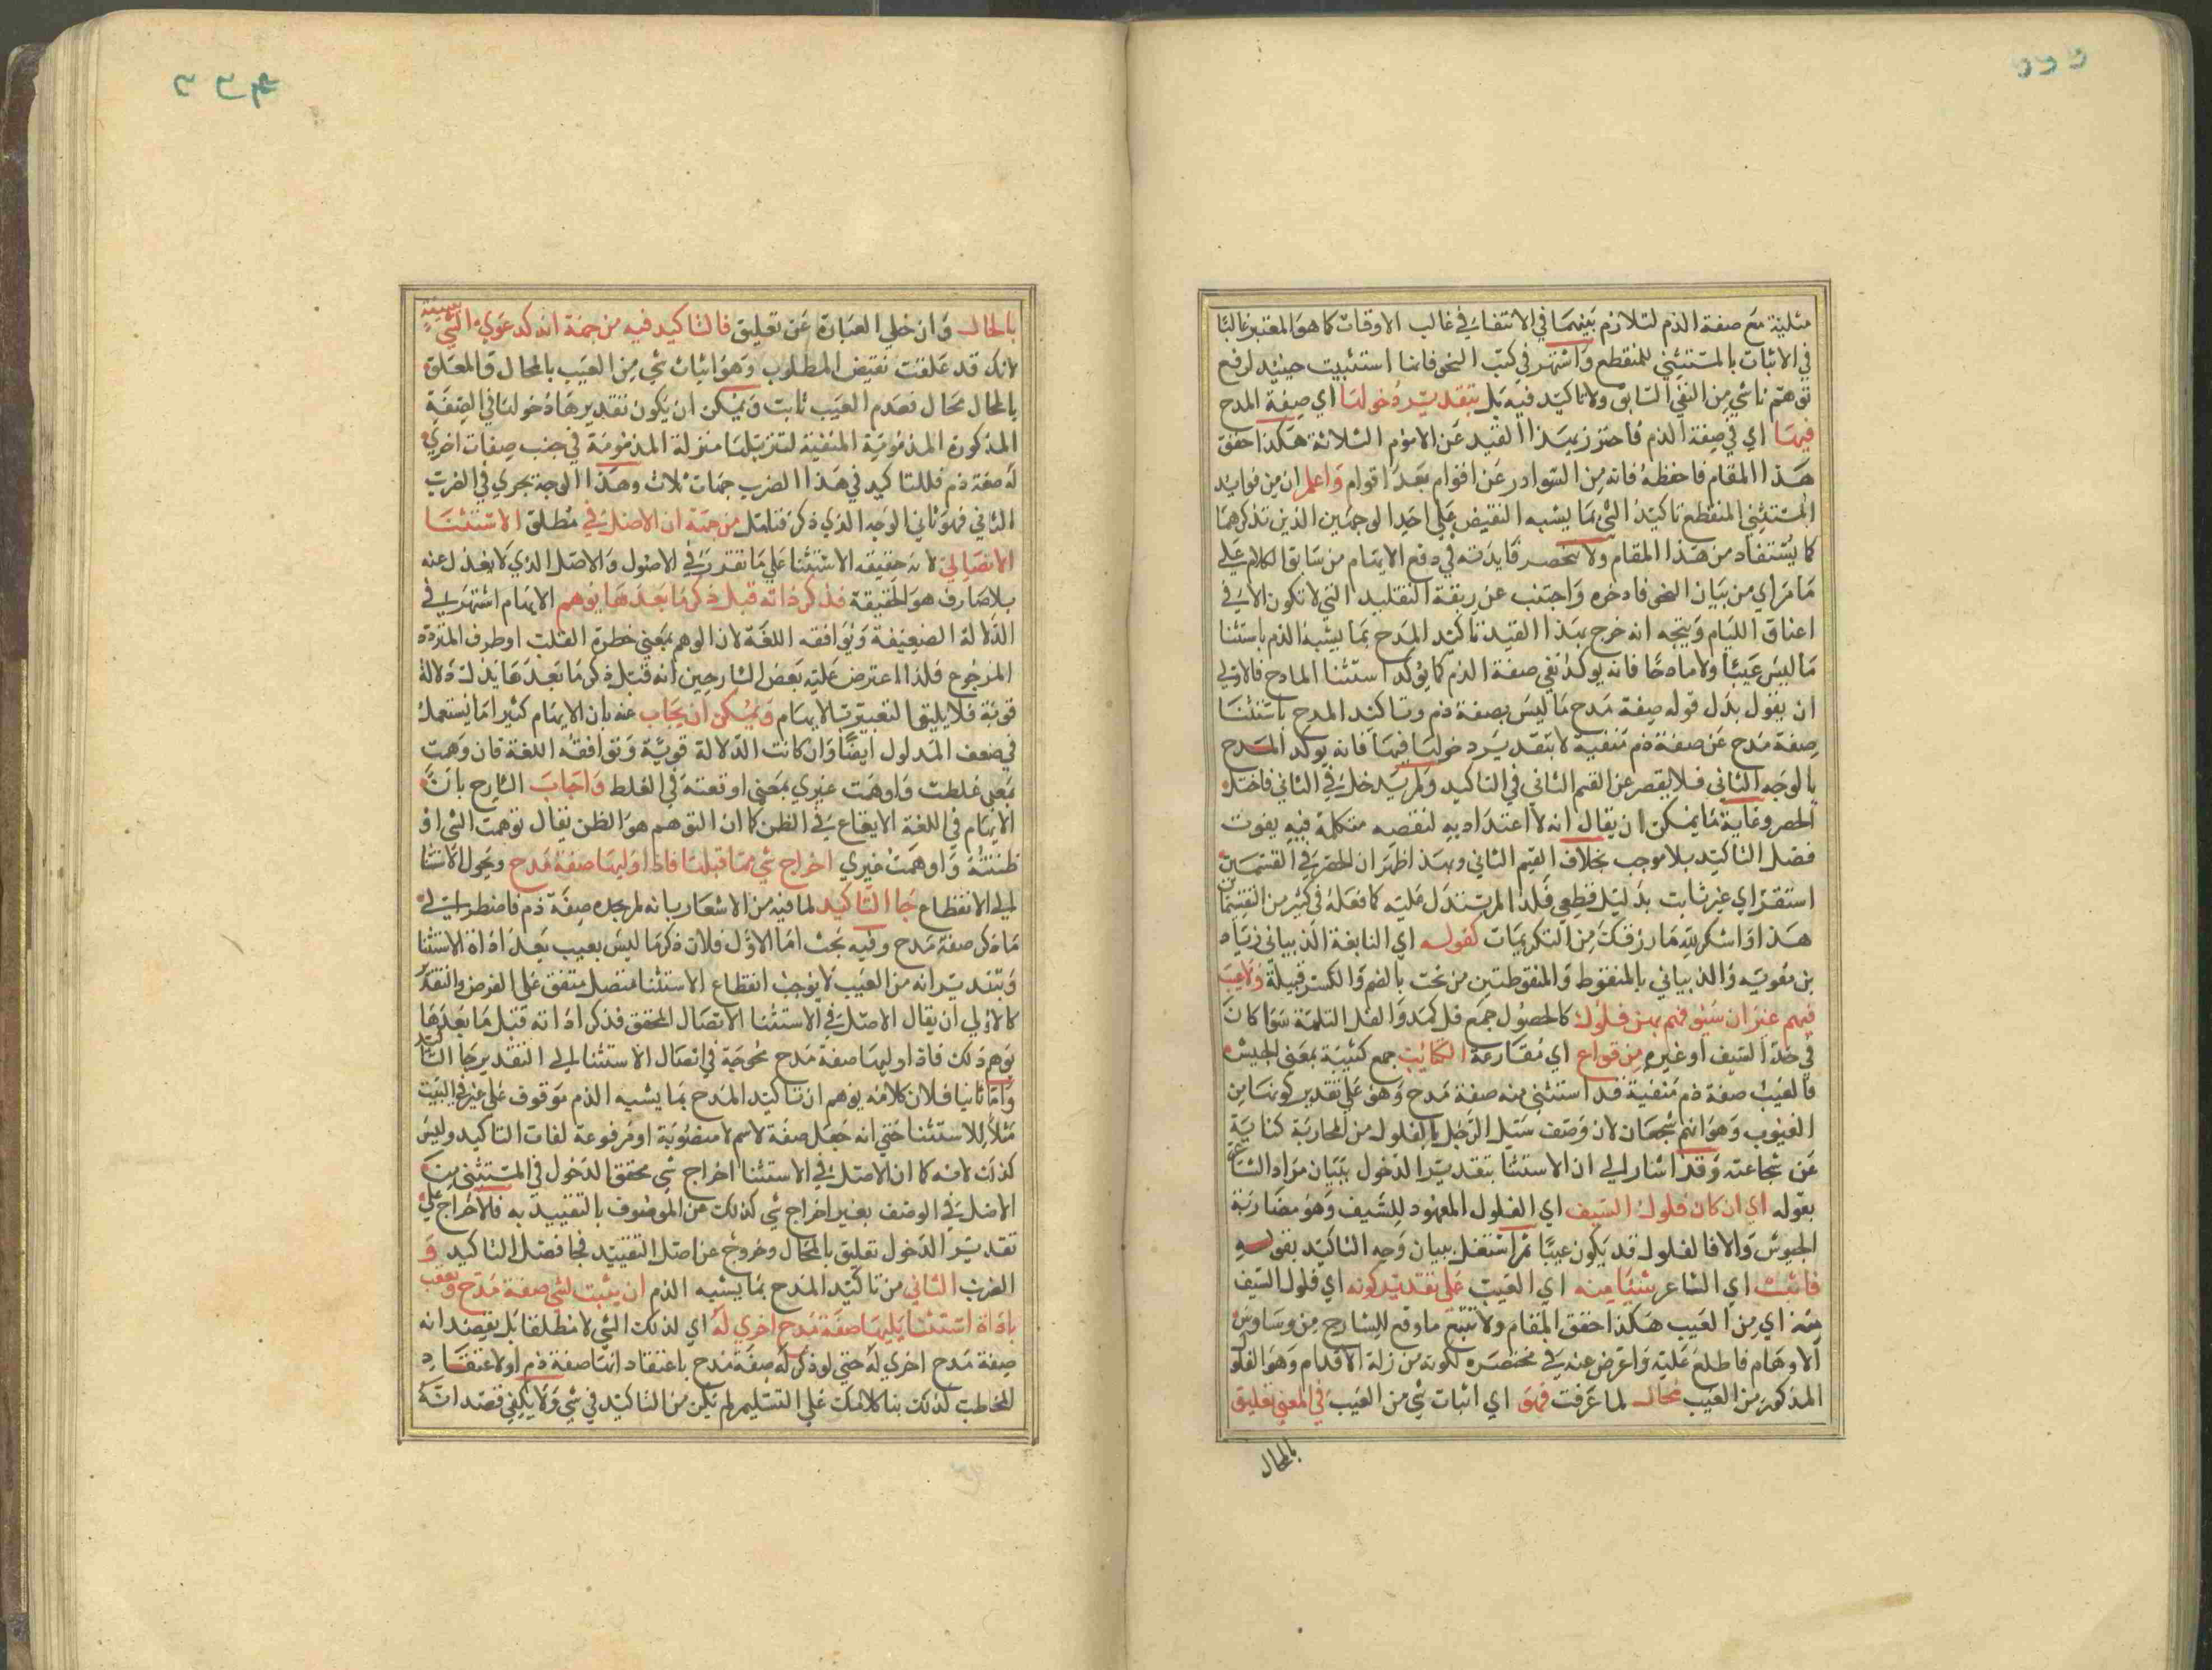 مثلية مع صفة الذم لتلازم بينهما في الانتفاء في غالب الاوقات كما هو المعتبر غالبا
في الاثبات بالمستثني للمنقطع واشتهر في كتب النحو فانما استثبيت حينئد لرفع
توهم ناشي من النفي السابق ولا تاكيد فيه بل بتقدير دخولها اي صفة المدح
فيها اي في صفة الذم فاحترز بهذا القيد عن الامور الثلاثة هكذا حقق
هذا المقام فاحفظه فانه من السوادر عن اقوام بعد اقوام واعلم ان من فوايد
المستثني المنقطع تاكيد الشي بما يشبه النقيض علي احد الوجهين الذين تذكرهما
كما يستفاد من هذا المقام ولا تحصر فايدته في دفع الايهام من سابق الكلام علي
ما مر اي من بيان النحو فادخره واجتنب عن ربقة التقليد التي لا تكون الا في
اعناق الليام ويتجه انه خرج بهذا القيد تاكيد المدح بما يشبه الذم باستثنا
ما ليس عيبا ولا مادحا فانه يوكد نفي صفة الذم كما يوكد استثنا المادح فالاولي
ان يقول بدل قوله صفة مدح ما ليس بصفة ذم وتاكيد المدح باستثنا
صفة مدح عن صفة ذم منفية لا بتقدير دخولها فيها فانه يوكد المدح
بالوجه الثاني فلا يقصر عن القسم الثاني في التاكيد ولم يدخل في الثاني فاختل
الحصر وغاية ما يمكن ان يقال انه لا اعتداد به لنقصه متكلم فيه يفوت
فضل التاكيد بلا موجب بخلاف القسم الثاني وبهذا ظهر ان الحصر في القسمين
استقراي غير ثابت بدليل قطعي فلذا لم يستدل عليه كما فعله في كثير من التقسيمات
هذا واشكر لله ما رزقك من التكريمات كقوله اي النابغة الذبياني زياد
بن معويه والذبياني بالمنقوط والمنقوطتين من تحت بالضم والكسر قبيلة ولا عيب
فيهم غير ان سيوفهم بهن فلول كالحصول جمع فل كمد والفل الثلمة سوا كان
في حد السيف او غيره من قراع اي مقارعة الكتائب جمع كتيبة بمعني الجيش
فالعيب صفة ذم منفية قد استثني منه صفة مدح وهو علي تقدير كونها من
العيوب وهو انهم شجعان لان وصف سل الرجل بالفلول من المحاربة كناية
عن شجاعته وقد اشار الي ان الاستثنا بتقدير الدخول ببيان مراد الشاعر
بقوله اي ان كان فلول السيف اي الفلول المعهود للسيف وهو مضاربة
الجيوش والا فالفلول قد يكون عيبا ثم اشتغل ببيان وجه التاكيد بقوله
فاثبت اي الشاعر شيئا منه اي العيب علي تقدير كونه اي فلول السيف
منه اي من العيب هكذا حقق المقام ولا تتبع ما وقع للشارح من وساوس
الاوهام فاطلع عليه واعرض عنه في مختصره لكونه من زلة الاقدام وهو الفلول
المذكور من العيب محال لما عرفت فهو اي اثبات شي من العيب في المعني تعليق
بالمحال
بالمحال وان خلي العبارة عن تعليق فالتاكيد فيه من جهة انه كدعوي الشي ببينة
لانك قد علقت نقيض المطلوب وهو اثبات شي من العيب بالمحال والمعلق
بالمحال محال فعدم العيب ثابت ويمكن ان يكون تقديرها دخولها في الصفة
المذكورة المذمومة المنفية لتنزيلها منزلة المذمومة في جنب صفات اخري
له صفة ذم فللتاكيد في هذا الضرب جهات ثلاث وهذا الوجه يجري في الضرب
الثاني فهو ثاني الوجه الذي ذكر فتامل من جهة ان الاصل في مطلق الاستثنا
الاتصال لانه حقيقه الاستثنا علي ما تقرر في الاصول والاصل الذي لا يعدل عنه
بلا صارف هو الحقيقة فذكر اداته قبل ذكر ما بعدها يوهم الايهام اشتهر في
الدلالة الضعيفة ويوافقه اللغة لان الوهم بمعني خطرة القلب او طرف المتردد
المرجوح فلذا اعترض عليه بعض الشارحين انه قبل ذكر ما بعدها يدل دلالة
قوية فلا يليق التعبير بالايهام ويمكن ان يجاب عنه بان الايهام كثيرا ما يستعمل
في ضعف المدلول ايضا وان كانت الدلالة قوية وتوافقه اللغة فان وهمت
بمعني غلطت واوهمت غيري بمعني اوقعته في الغلط واجاب الشارح بان
الايهام في اللغة الايقاع في الظن كما ان التوهم هو الظن يقال توهمت الشي او
ظننته واوهمت غيري اخراج شي مما قبلها فاذا وليها صفة مدح وتحول الاستثنا
الي الانقطاع جا التاكيد لما فيه من الاشعار بانه لم يجد صفة ذم فاضطر الي
ما ذكر صفة مدح وفيه بحث اما الاول فلان ذكر ما ليس بعيب بعد اداة الاستثنا
وبتقدير انه من العيب لا يوجب انقطاع الاستثنا متصل متفق علي الفرض والتقدير
كالاولي ان يقال الاصل في الاستثنا الاتصال المحقق فذكر اداته قبل ما بعدها
يوهم ذلك فاذا وليها صفة مدح محوجة في اتصال الاستثنا الي التقدير جا التاكيد
واما ثانيا فلان كلامه يوهم ان تاكيد المدح بما يشبه الذم موقوف علي غير في البيت
مثلا للاستثنا حتي انه جعل صفة لاسم لا منصوبة او مرفوعة لفات التاكيد وليس
كذلك لانه كما ان الاصل في الاستثنا اخراج شي محقق الدخول في المستثني منه
الاصل في الوصف بغير اخراج شي كذلك من الموصوف بالتقييد به فالاخراج علي
تقدير الدخول تعليق بالمحال وخروج عن اصل التقييد فجا فضل التاكيد و
الضرب الثاني من تاكيد المدح بما يشبه الذم ان يثبت لشي صفة مدح وتعقب
باداة استثنا يليها صفة مدح اخري له اي لذلك الشي لا مطلقا بل بقصد انه
صفة مدح اخري له حتي لو ذكر له صفة مدح باعتقاد انها صفة ذم او لاعتقاد
المخاطب كذلك بنا كلامك علي التسليم لم يكن من التاكيد في شي ولا يكفي قصد انه